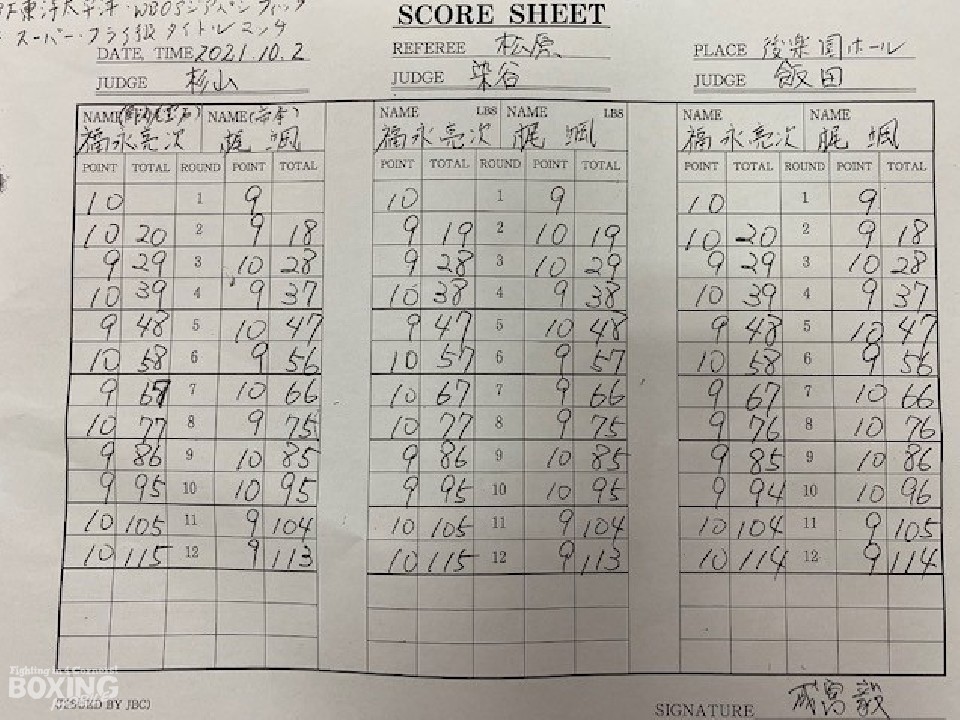 PF東洋太平洋・WBOアジアパシフィック
スーパー・フライ級タイトルマッチ
SCORE SHEET
DATE, TIME 2021.10.2 REFEREE 松原 PLACE 後楽園ホール
JUDGE 杉山 JUDGE 染谷 JUDGE 飯田
NAME NAME NAME LBS NAME LBS NAME NAME
福永亮次 梶颯 福永亮次 梶颯 福永亮次 梶颯
POINT TOTAL ROUND POINT TOTAL POINT TOTAL ROUND POINT TOTAL POINT TOTAL ROUND POINT TOTAL
10 1 9 10 1 9 10 1 9
10 20 2 9 18 9 19 2 10 19 10 20 2 9 18
9 29 3 10 28 9 28 3 10 29 9 29 3 10 28
10 39 4 9 37 10 38 4 9 38 10 39 4 9 37
9 48 5 10 47 9 47 5 10 48 9 48 5 10 47
10 58 6 9 56 10 57 6 9 57 10 58 6 9 56
9 67 7 10 66 10 67 7 9 66 9 67 7 10 66
10 77 8 9 75 10 77 8 9 75 9 76 8 10 76
9 86 9 10 85 9 86 9 10 85 9 85 9 10 86
9 95 10 10 95 9 95 10 10 95 9 94 10 10 96
10 105 11 9 104 10 105 11 9 104 10 104 11 9 105
10 115 12 9 113 10 115 12 9 113 10 114 12 9 114
Fighting in 4 Corners!
BOXING
ISSUED BY JBC) SIGNATURE 成富毅